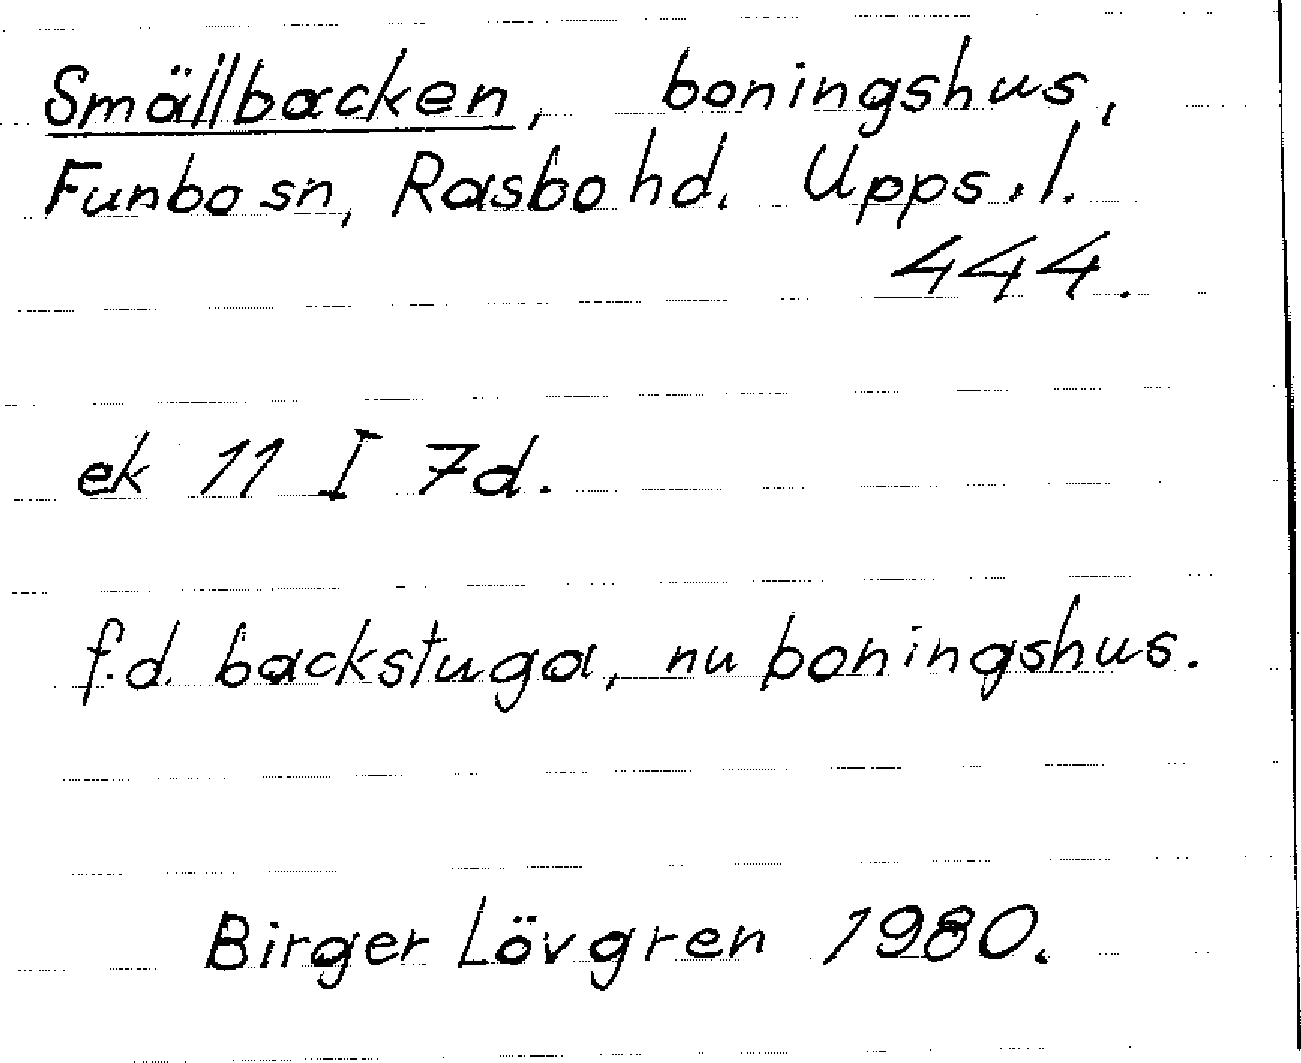 Smällbacken, boningshus,
Funbo sn, Rasbo hd. Upps. l.
444.
ek 11 I 7d.
f.d. backstuga, nu boningshus.
Birger Lövgren 1980.